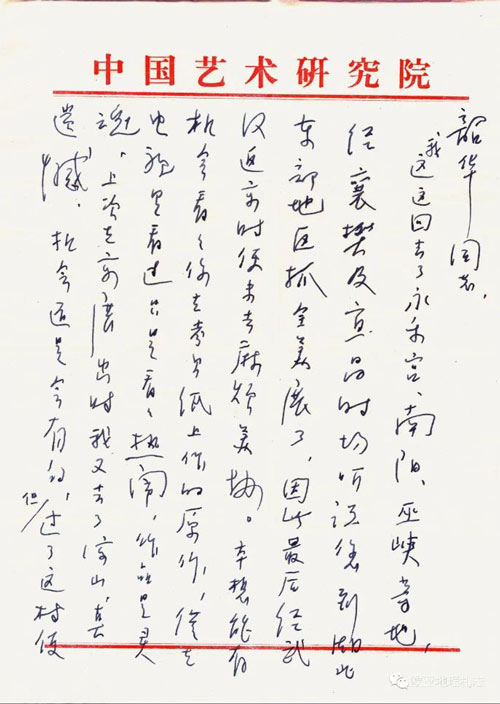 中国艺术研究院
韶华同志,
我这这回去了永乐宫、南阳、巫峡等地,
经襄樊及宜昌时均听说您到湖北
东部地区抓全美展了,因此最后经武
汉返京时便未去麻烦美协。本想能有
机会看看你在纸上作的原作,
电视里看过只是看看热闹,作品是灵
魂,上次在京展出时我又去了山,真
遗憾,机会还是会有的,但过了这村便